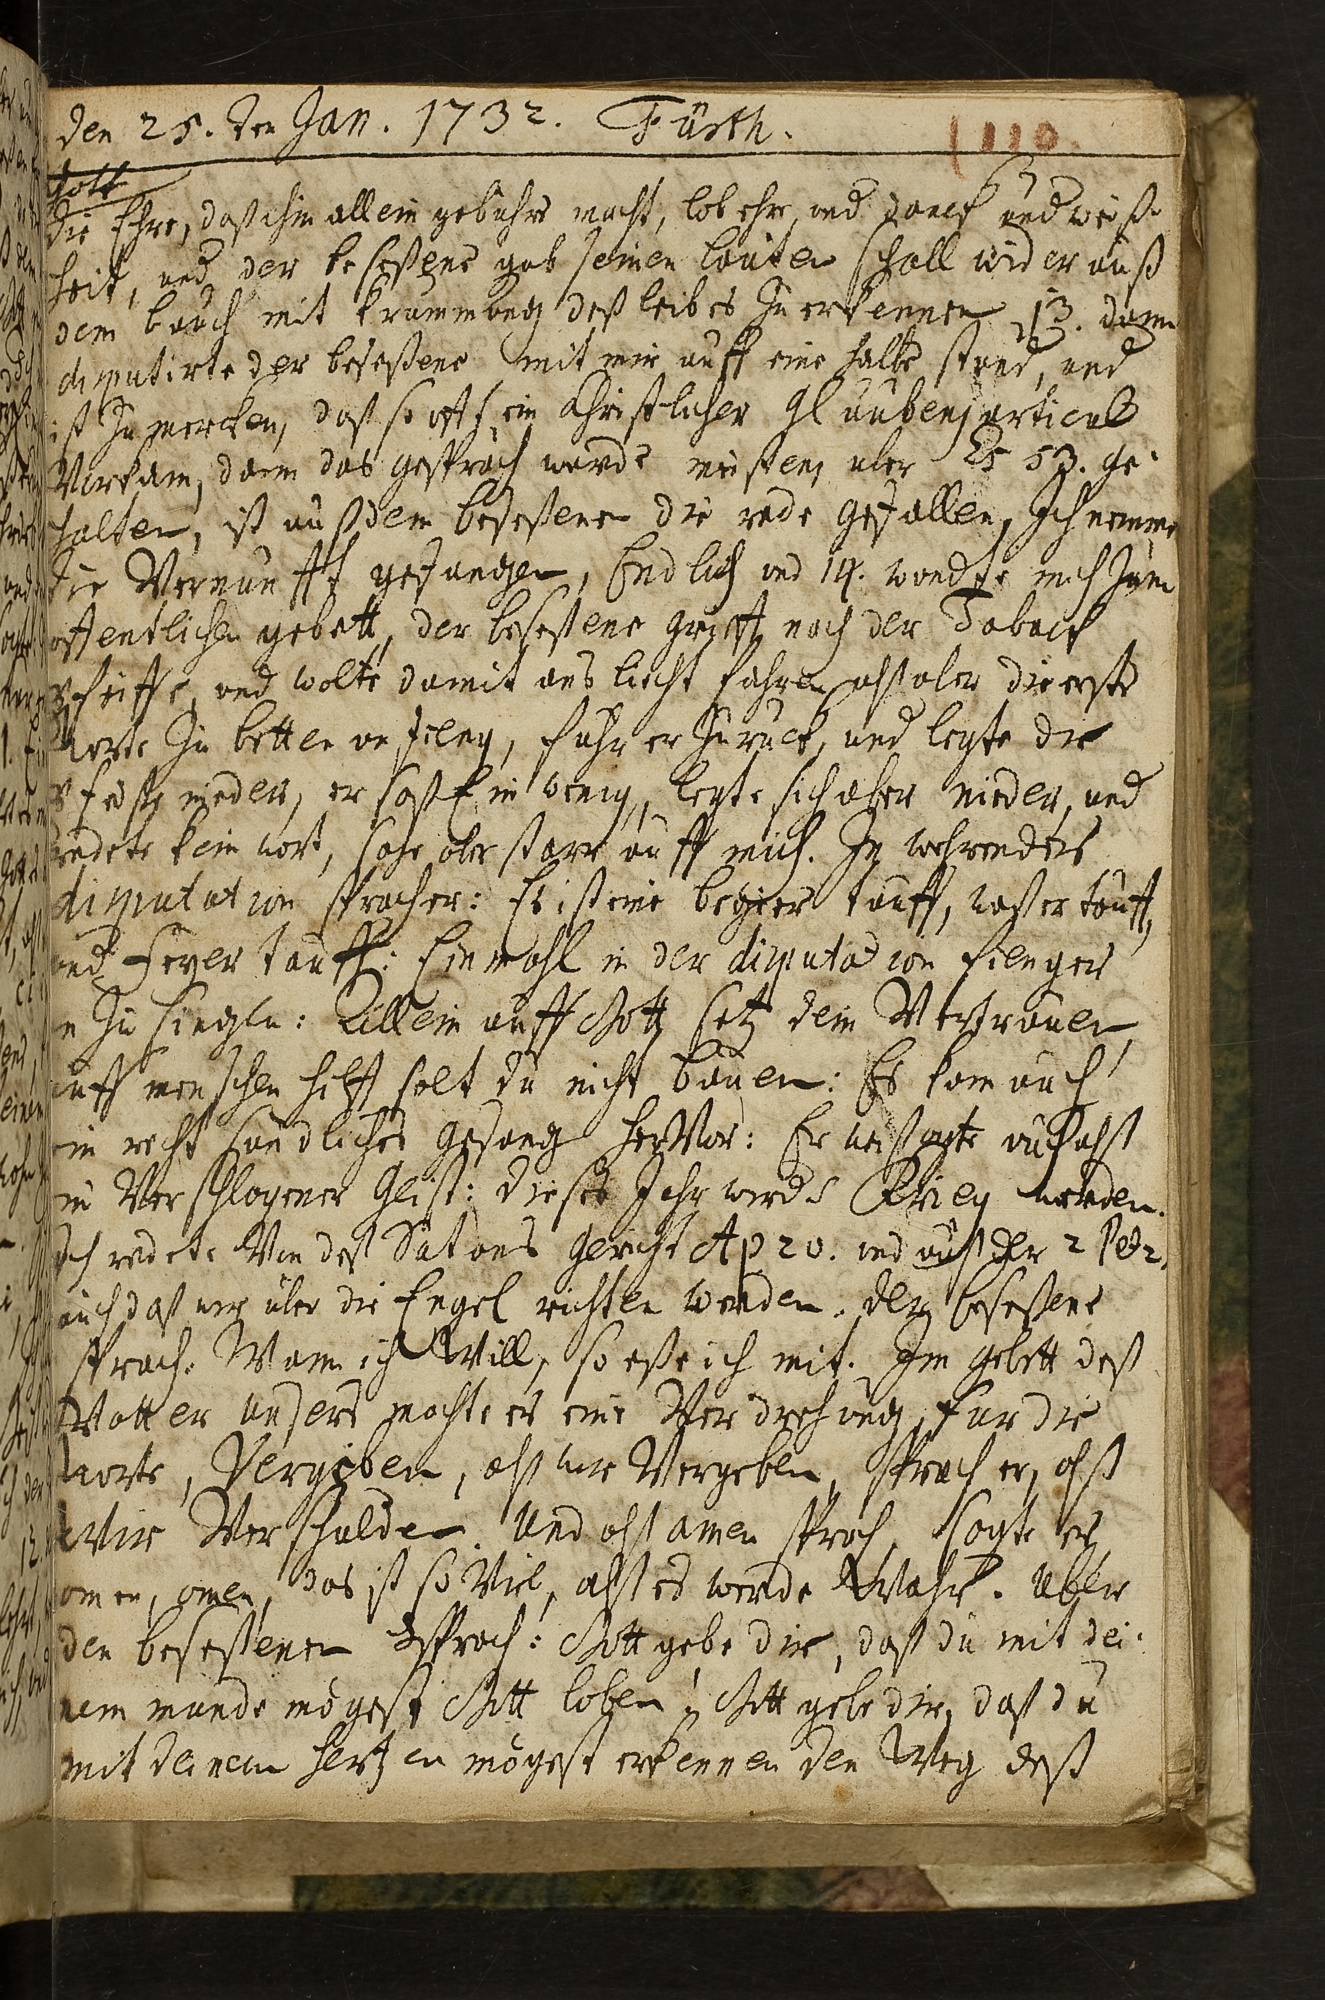 den 25. den Jan. 1732. Fürth.
110.
Gott
die Ehre, daß ihm allein gebühre macht, lob ehre, und danck und weiß-
heit, und der beseßene gab seinen lauten schall wider auß
dem bauch mit krümmung deß leibes zu erkennen 13. dann
disputirte der beseßene mit mir auff eine halbe stund, und
ist zu mercken, daß so offt ein Christlicher Glaubens articul
Vorkam, dann das gespräch wurde meistens über Es 53. ge-
halten, ist auß dem beseßenen die rede gefallen, Ich nemme
die Vernunfft gefangen, Endlich und 14. wendte mich zum
offentlichen gebett, der beseßene griff nach der Taback
pfeiffe, und wolte damit ans liecht fahren, alß aber die erste
worte zu betten an fieng, fuhr er zurück, und legte die
Pfeiffe nieder, er saß Ein wenig, legte sich aber nieder, und
redete kein wort, sahe aber starr auff mich. In wehrender
disputation sprach er: Es ist eine begier tauff, waßer tauff,
und Feyer tauff: Einmahl in der disputation fienge er
an zu singen: Allein auff Gott setz dein Vertrauen,
auff menschen hilff solt du nicht bauen: Es kam auch
ein recht sündliches gesang herVor: Er weissagte auch alß
ein Verschlagener Geist: dieses Jahr wirds Krieg werden.
Ich redete Von deß Satans gericht Ap 20. und auß der 2 Pet 2.
auch daß wir über die Engel richten werden. der beseßene
sprach: Wann ich Will, so eße ich mit. Im gebett deß
Vatter unsers machte er eine Verdrehung, für die
worte, Vergeben, alß wir Vergeben, sprach er, alß
Wir Verschulden. Und alß amen sprach, sagte er
omen, omen, das ist so Viel, alß es werde Wahr. Uber
den beseßenen sprach: Gott gebe dir, daß du mit dei-
nem munde mögest Gott loben; Gott gebe dir, daß du
mit deinem hertzen mögest erkennen den Weg deß